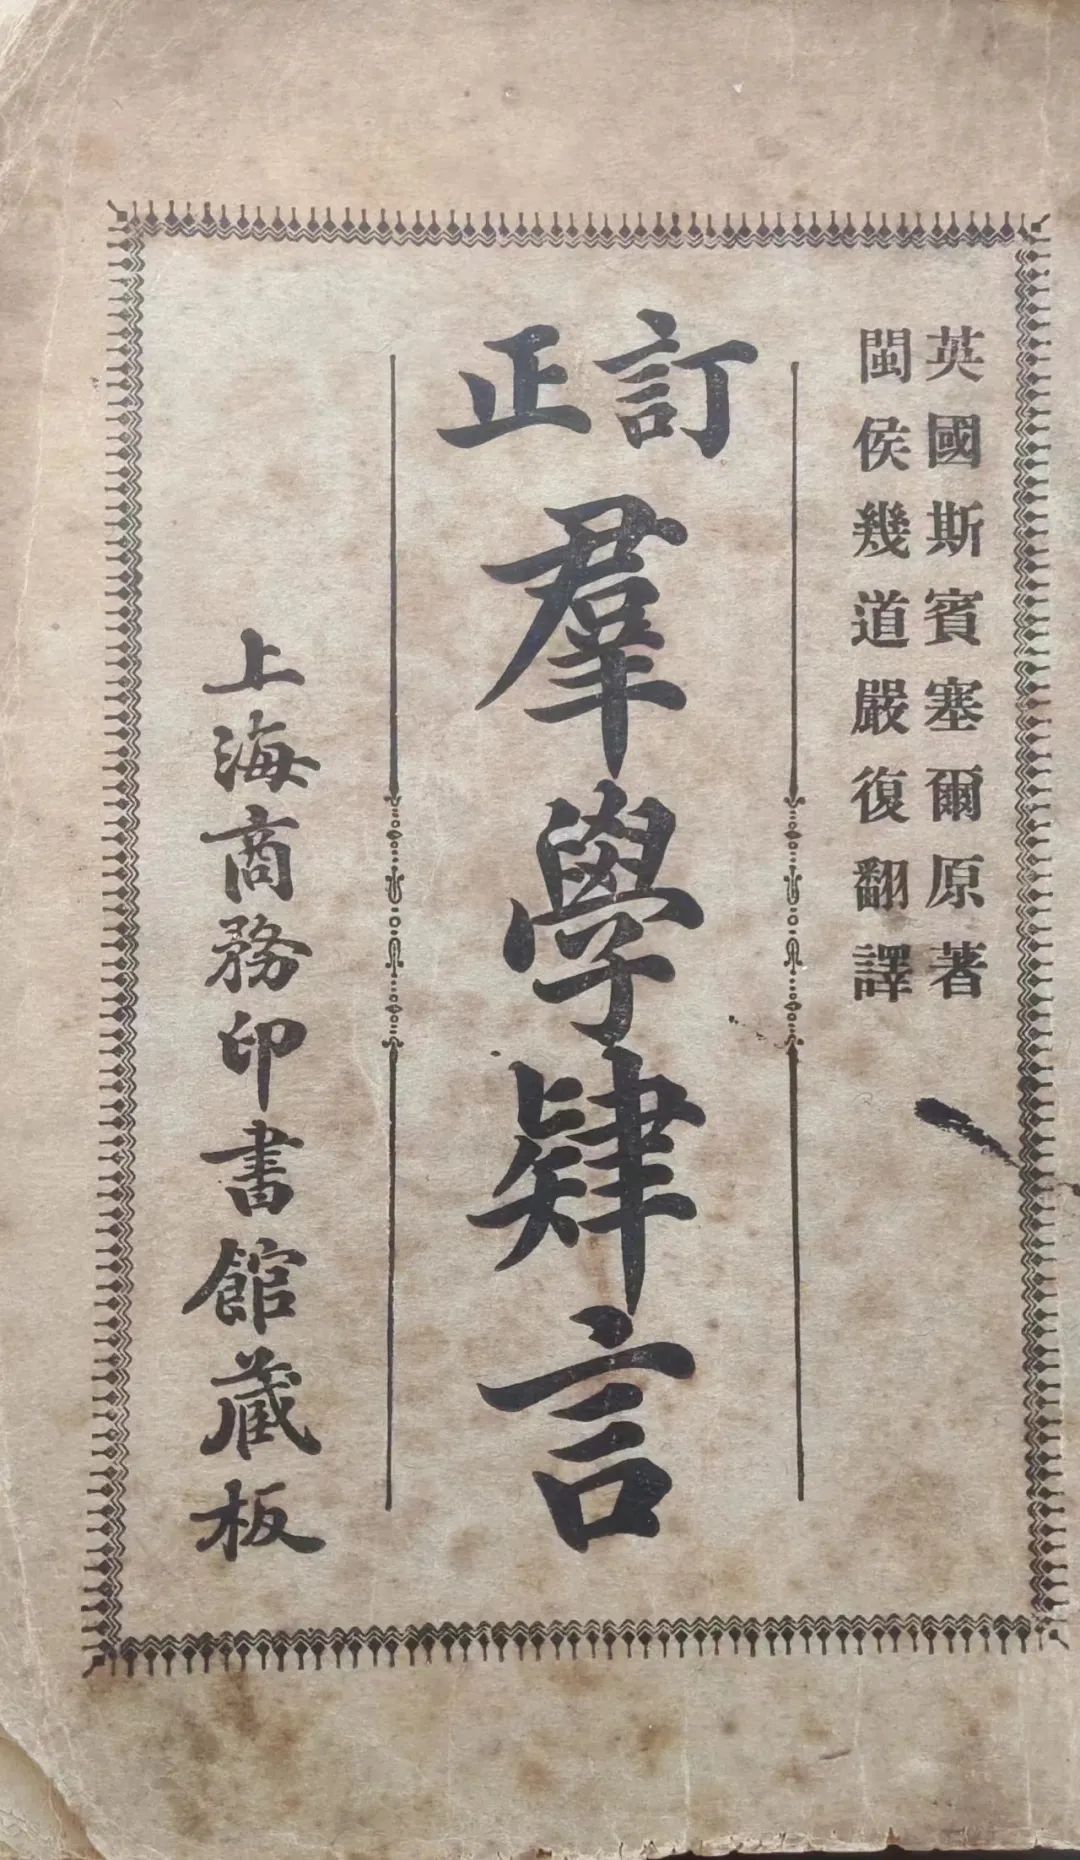 英國斯賓塞爾原著
閩侯幾道嚴復翻譯
訂正
羣學肄言
上海商務印書館藏板